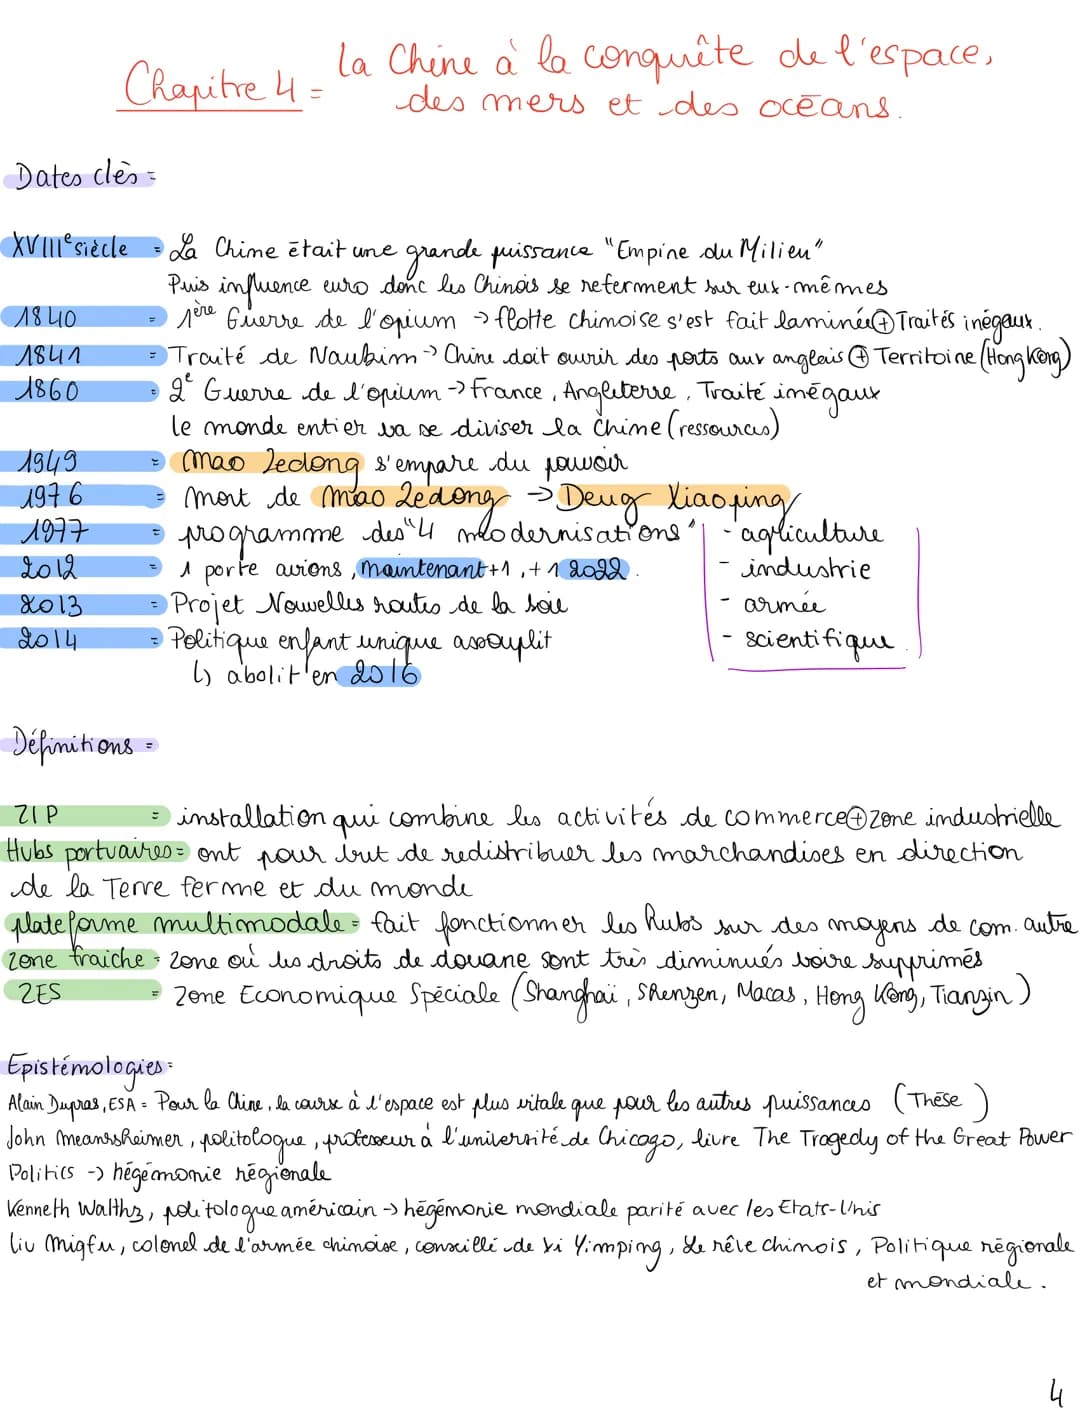 Chapitre 4 = La Chine à la conquête de l'espace,
des mers et des océans.
Dates clès =
XVIII<sup>e</sup> siècle = La Chine était une grande puissance "Empine du Milieu"
Puis influence euro donc les Chinois se referment sur eux-mêmes
1840 = 1ère Guerre de l'opium -> flotte chinoise s'est fait laminée ⊕ Traités inégaux.
1841 = Traité de Naubim -> Chine doit ouvrir des ports aux anglais ⊕ Territoire (Hong Kong)
1860 = 2e Guerre de l'opium -> France, Angleterre, Traité inégaux
le monde entier va se diviser la Chine (ressources)
1949 = Mao Zedong s'empare du pouvoir
1976 = mort de Mao Zedong -> Deug Xiaoping
1977 = programme des "4 modernisations" - agriculture
2012 = 1 porte avions, maintenant +1, +1 2022. - industrie
2013 = Projet Nouvelles routes de la soie - armée
2014 = Politique enfant unique assouplit - scientifique.
↳ abolit en 2016
Définitions =
ZIP = installation qui combine les activités de commerce ⊕ zone industrielle
Hubs portuaires = ont pour but de redistribuer les marchandises en direction
de la Terre ferme et du monde
plateforme multimodale = fait fonctionner les hubs sur des moyens de com. autre
zone fraiche = zone où les droits de douane sont très diminués voire supprimés
ZES = Zone Economique Spéciale (Shanghaï, Shenzen, Macas, Hong Kong, Tianzin)
Epistémologies =
Alain Dupras, ESA = Pour la Chine, la course à l'espace est plus vitale que pour les autres puissances (Thèse)
John meansheimer, politologue, professeur à l'université de Chicago, livre The Tragedy of the Great Power
Politics -> hégémonie régionale
Kenneth Walthz, politologue américain -> hégémonie mondiale parité avec les Etats-Unis
Liu Migfu, colonel de l'armée chinoise, conseillé de Xi Yimping, Le rêve chinois, Politique régionale
et mondiale.
4